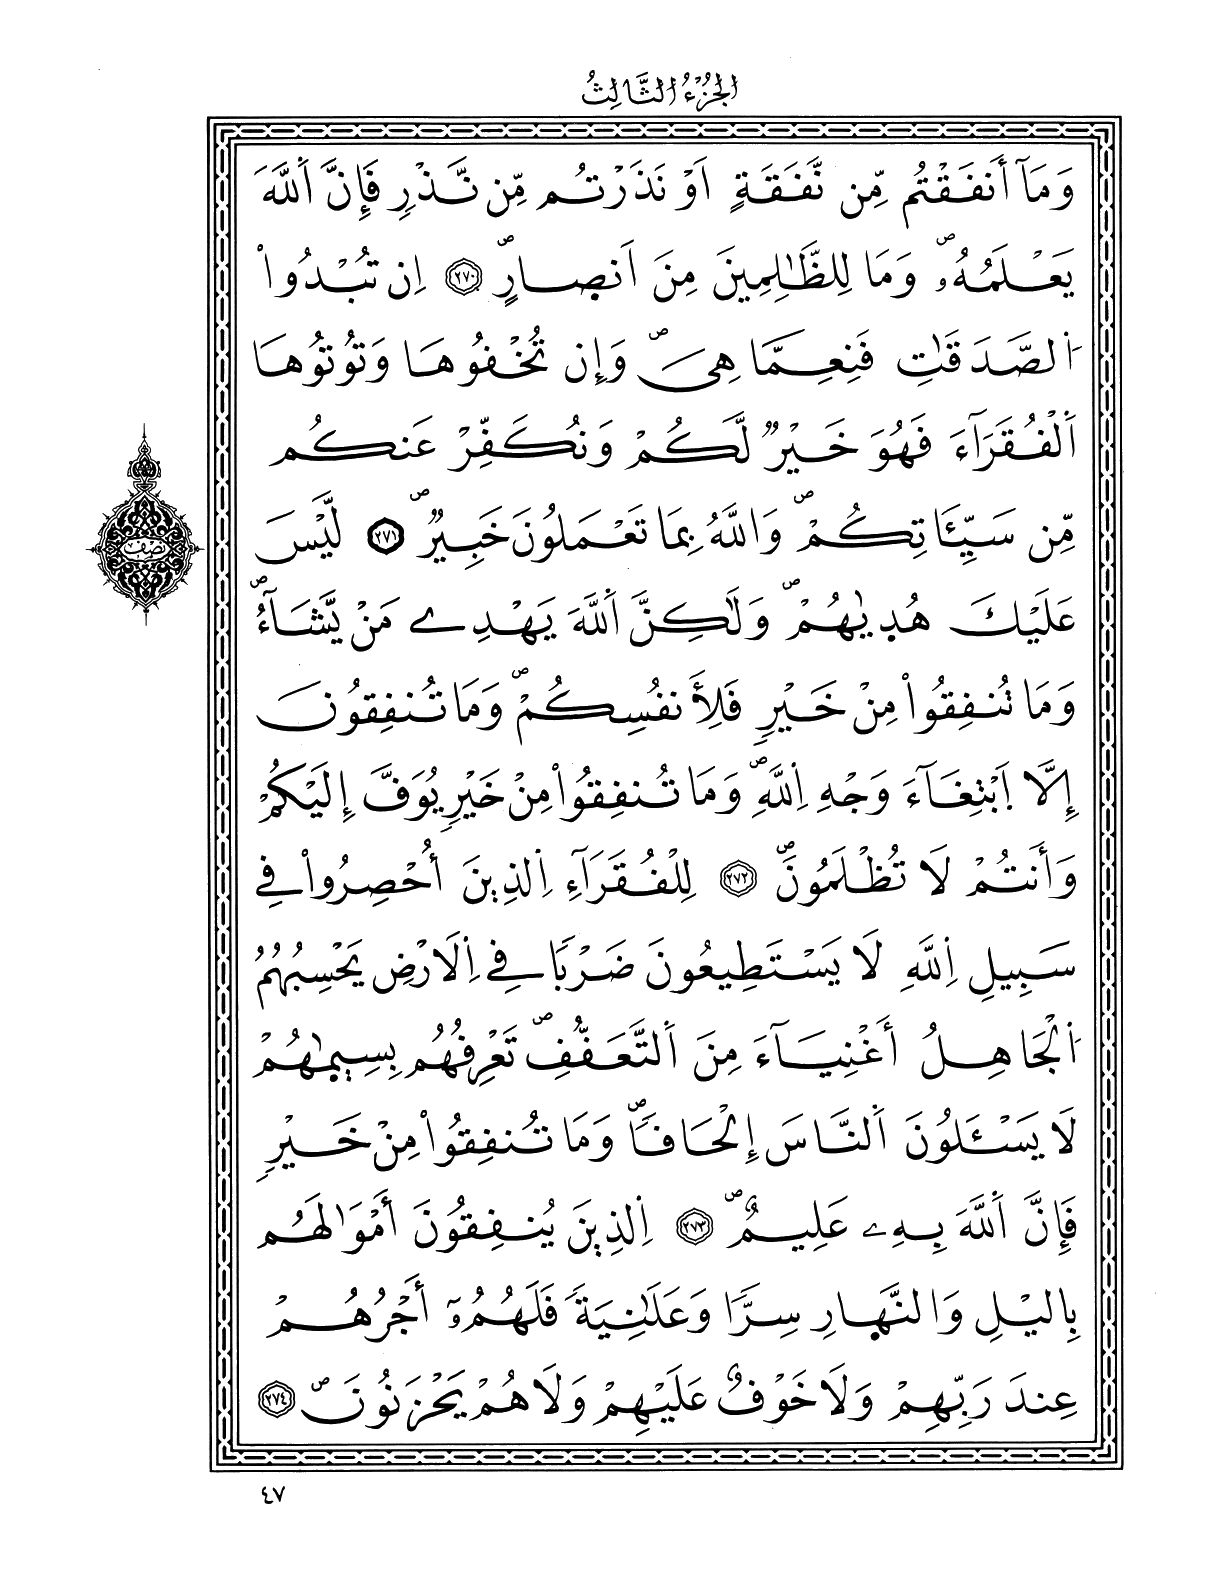 الجُزْءُ الثَّالِثُ
وَمَآ أَنفَقْتُم مِّن نَّفَقَةٍ اَوْ نَذَرْتُم مِّن نَّذْرٖ فَإِنَّ اَ۬للَّهَ
يَعْلَمُهُۥۖ وَمَا لِلظَّٰلِمِينَ مِنَ اَنصِارٍۖ ٢٧٠ اِن تُبْدُواْ
اُ۬لصَّدَقَٰتِ فَنِعِمَّا هِيَۖ وَإِن تُخْفُوهَا وَتُوتُوهَا
اَ۬لْفُقَرَآءَ فَهُوَ خَيْرٞ لَّكُمْ وَنُكَفِّرْ عَنكُم
مِّن سَيِّـَٔاتِكُمْۖ وَاللَّهُ بِمَا تَعْمَلُونَ خَبِيرٞۖ ٢٧١ لَّيْسَ
عَلَيْكَ هُدۭيٰهُمْۖ وَلَٰكِنَّ اَ۬للَّهَ يَهْدِے مَنْ يَّشَآءُۖ
وَمَا تُنفِقُواْ مِنْ خَيْرٖ فَلِأَنفُسِكُمْۖ وَمَا تُنفِقُونَ
إِلَّا اَ۪بْتِغَآءَ وَجْهِ اِ۬للَّهِۖ وَمَا تُنفِقُواْ مِنْ خَيْرٖ يُوَفَّ إِلَيْكُمْ
وَأَنتُمْ لَا تُظْلَمُونَۖ ٢٧٢ لِلْفُقَرَآءِ اِ۬لذِينَ أُحْصِرُواْ فِے
سَبِيلِ اِ۬للَّهِ لَا يَسْتَطِيعُونَ ضَرْباٗ فِے اِ۬لَارْضِ يَحْسِبُهُمُ
اُ۬لْجَاهِلُ أَغْنِيَآءَ مِنَ اَ۬لتَّعَفُّفِۖ تَعْرِفُهُم بِسِيمۭيٰهُمْ
لَا يَسْـَٔلُونَ اَ۬لنَّاسَ إِلْحَافاٗۖ وَمَا تُنفِقُواْ مِنْ خَيْرٖ
فَإِنَّ اَ۬للَّهَ بِهِۦ عَلِيمٌۖ ٢٧٣ اِ۬لذِينَ يُنفِقُونَ أَمْوَٰلَهُم
بِاليْلِ وَالنَّهِارِ سِرّاٗ وَعَلَٰنِيَةٗ فَلَهُمُۥٓ أَجْرُهُمْ
عِندَ رَبِّهِمْ وَلَا خَوْفٌ عَلَيْهِمْ وَلَا هُمْ يَحْزَنُونَۖ ٢٧٤
نصف
٤٧